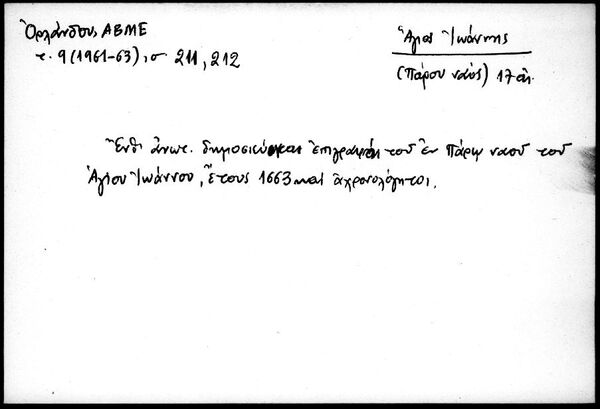 Ὀρλάνδου ΑΒΜΕ
τ. 9 (1961-63), σ 211, 212
Ἅγιος Ἰωάννης
(Πάρου ναός) 17 αι.
Ἔνθ' ἄνωτ. δημοσιεύονται ἐπιγραφαὶ τοῦ ἐν Πάρῳ ναοῦ τοῦ
Ἁγίου Ἰωάννου, ἔτους 1663 καὶ ἀχρονολόγητοι.